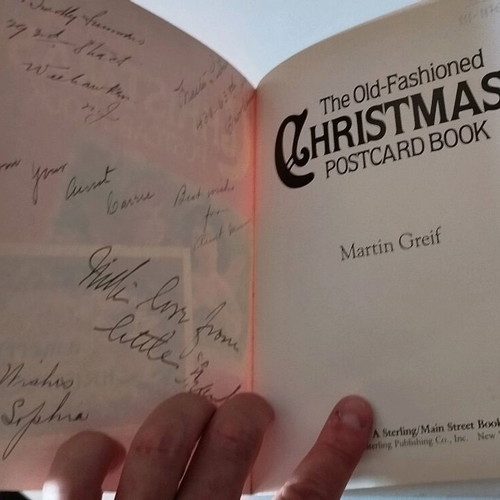 29 2d. Shatt
Weehawken
N.J.
your Aunt Carrie
Best wishes
from
With love from
little
Wishes
Sophia
The Old-Fashioned
CHRISTMAS
POSTCARD BOOK
Martin Greif
A Sterling/Main Street Book
Sterling Publishing Co., Inc. New